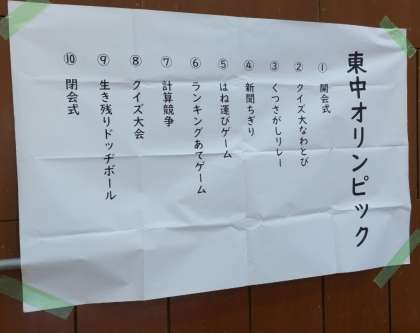 東中オリンピック
① 開会式
② クイズ大なわとび
③ くつさがしリレー
④ 新聞ちぎり
⑤ はね運びゲーム
⑥ ランキングあてゲーム
⑦ 計算競争
⑧ クイズ大会
⑨ 生き残りドッヂボール
⑩ 閉会式